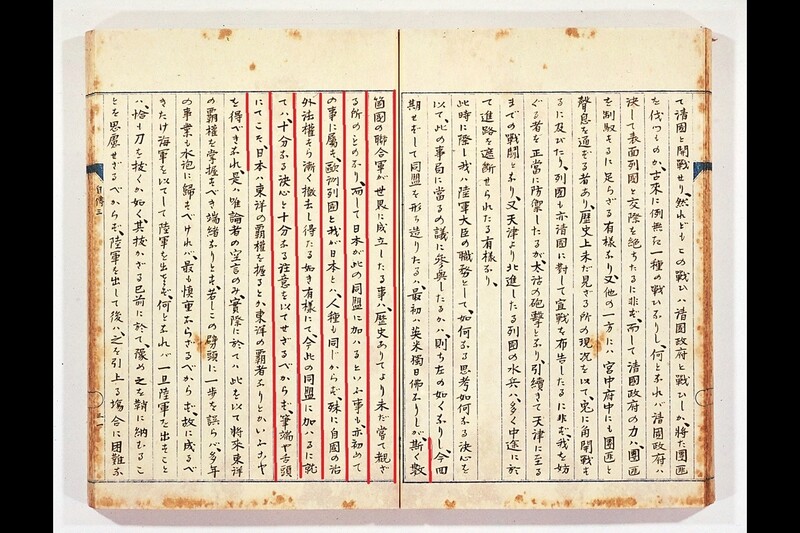 て清國と開戰せり、然れどもこの戰ひハ清國政府と戰ひしか、將た團匪
を伐つものか、古來に例無き一種の戰ひなりし、何となれバ清國政府ハ
決して表面列國と交際を絶ちたるに非ず、而して清國政府の力ハ、團匪
を制馭するに足らざる有樣なり、又他の一方にハ宮中府中にも團匪と
聲息を通ずる者あり、歷史上未だ見ざる所の現況を以て、兎に角開戰も
るに及びたり、列國も亦清國に對して宣戰を布告したるに非ず、我を妨
ぐる者を正當に防禦したるが、太沽の砲擊となり、引續きて天津に至る
までの戰鬪となり、又天津より北進したる列國の水兵ハ、多く中途に於
て進路を遮斷せられたる有樣なり、
此時に際し、我ハ陸軍大臣の職務として、如何なる思考如何なる決心を
以て、此の事局に當るの議に參與したるかハ、則ち左の如くなりし、今回
期せずして同盟を形ち造りたるハ、最初ハ英米獨日佛なりしが、斯く數
箇國の聯合軍が世界に成立したる事ハ、歷史ありてより未だ曾て觀ざ
る所のものなり、而して日本が此の同盟に加ハるといふ事も亦初めて
の事に屬す、歐洲列國と我が日本とハ、人種も同じからず、殊に自國の治
外法權すら漸く撤去し得たる如き有樣にて、今此の同盟に加ハるに就
てハ、十分なる決心と十分なる注意を以てせざるべからず、筆端や舌頭
にてこそ、日本ハ東洋の覇權を握るとか東洋の覇者なりとかいふコヤ
を得べきなれ、是ハ唯論者の空言のみ、實際に於てハ此を以て將來東洋
の覇權を掌握すべき端緒なりとす、若しこの劈頭に一步を誤らバ、多年
の事業も水泡に歸すべけれバ、最も愼重ならざるべからず、故に成るべ
きたけ海軍を以てして陸軍を出さず、何となれバ一旦陸軍を出すこと
ハ、恰も刀を拔くが如く、其拔かざる已前に於て、豫め之を鞘に納むるこ
とを思慮せざるべからず、陸軍を出して後ハ、之を引上る塲合に困難な
自傳三